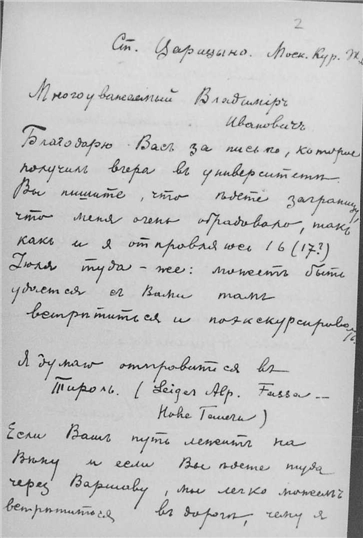 2
Ст. Царицыно. Моск. Кур. Ж.
Многоуважаемый Владимiръ
Ивановичъ
Благодарю Васъ за письмо, которое
получилъ вчера въ университетѣ.
Вы пишите, что ѣдете заграницу,
что меня очень обрадовало, такъ
какъ и я отправляюсь 16 (17?)
Iюля туда-же: можетъ быть
удастся съ Вами тамъ
встрѣтиться и поэкскурсировать.
Я думаю отправиться въ
Тироль. (Seiser Alp. Fassa --
Hohe Tauern)
Если Вашъ путь лежитъ на
Вѣну и если Вы ѣдете туда
черезъ Варшаву, мы легко можемъ
встрѣтиться въ дорогѣ, чему я